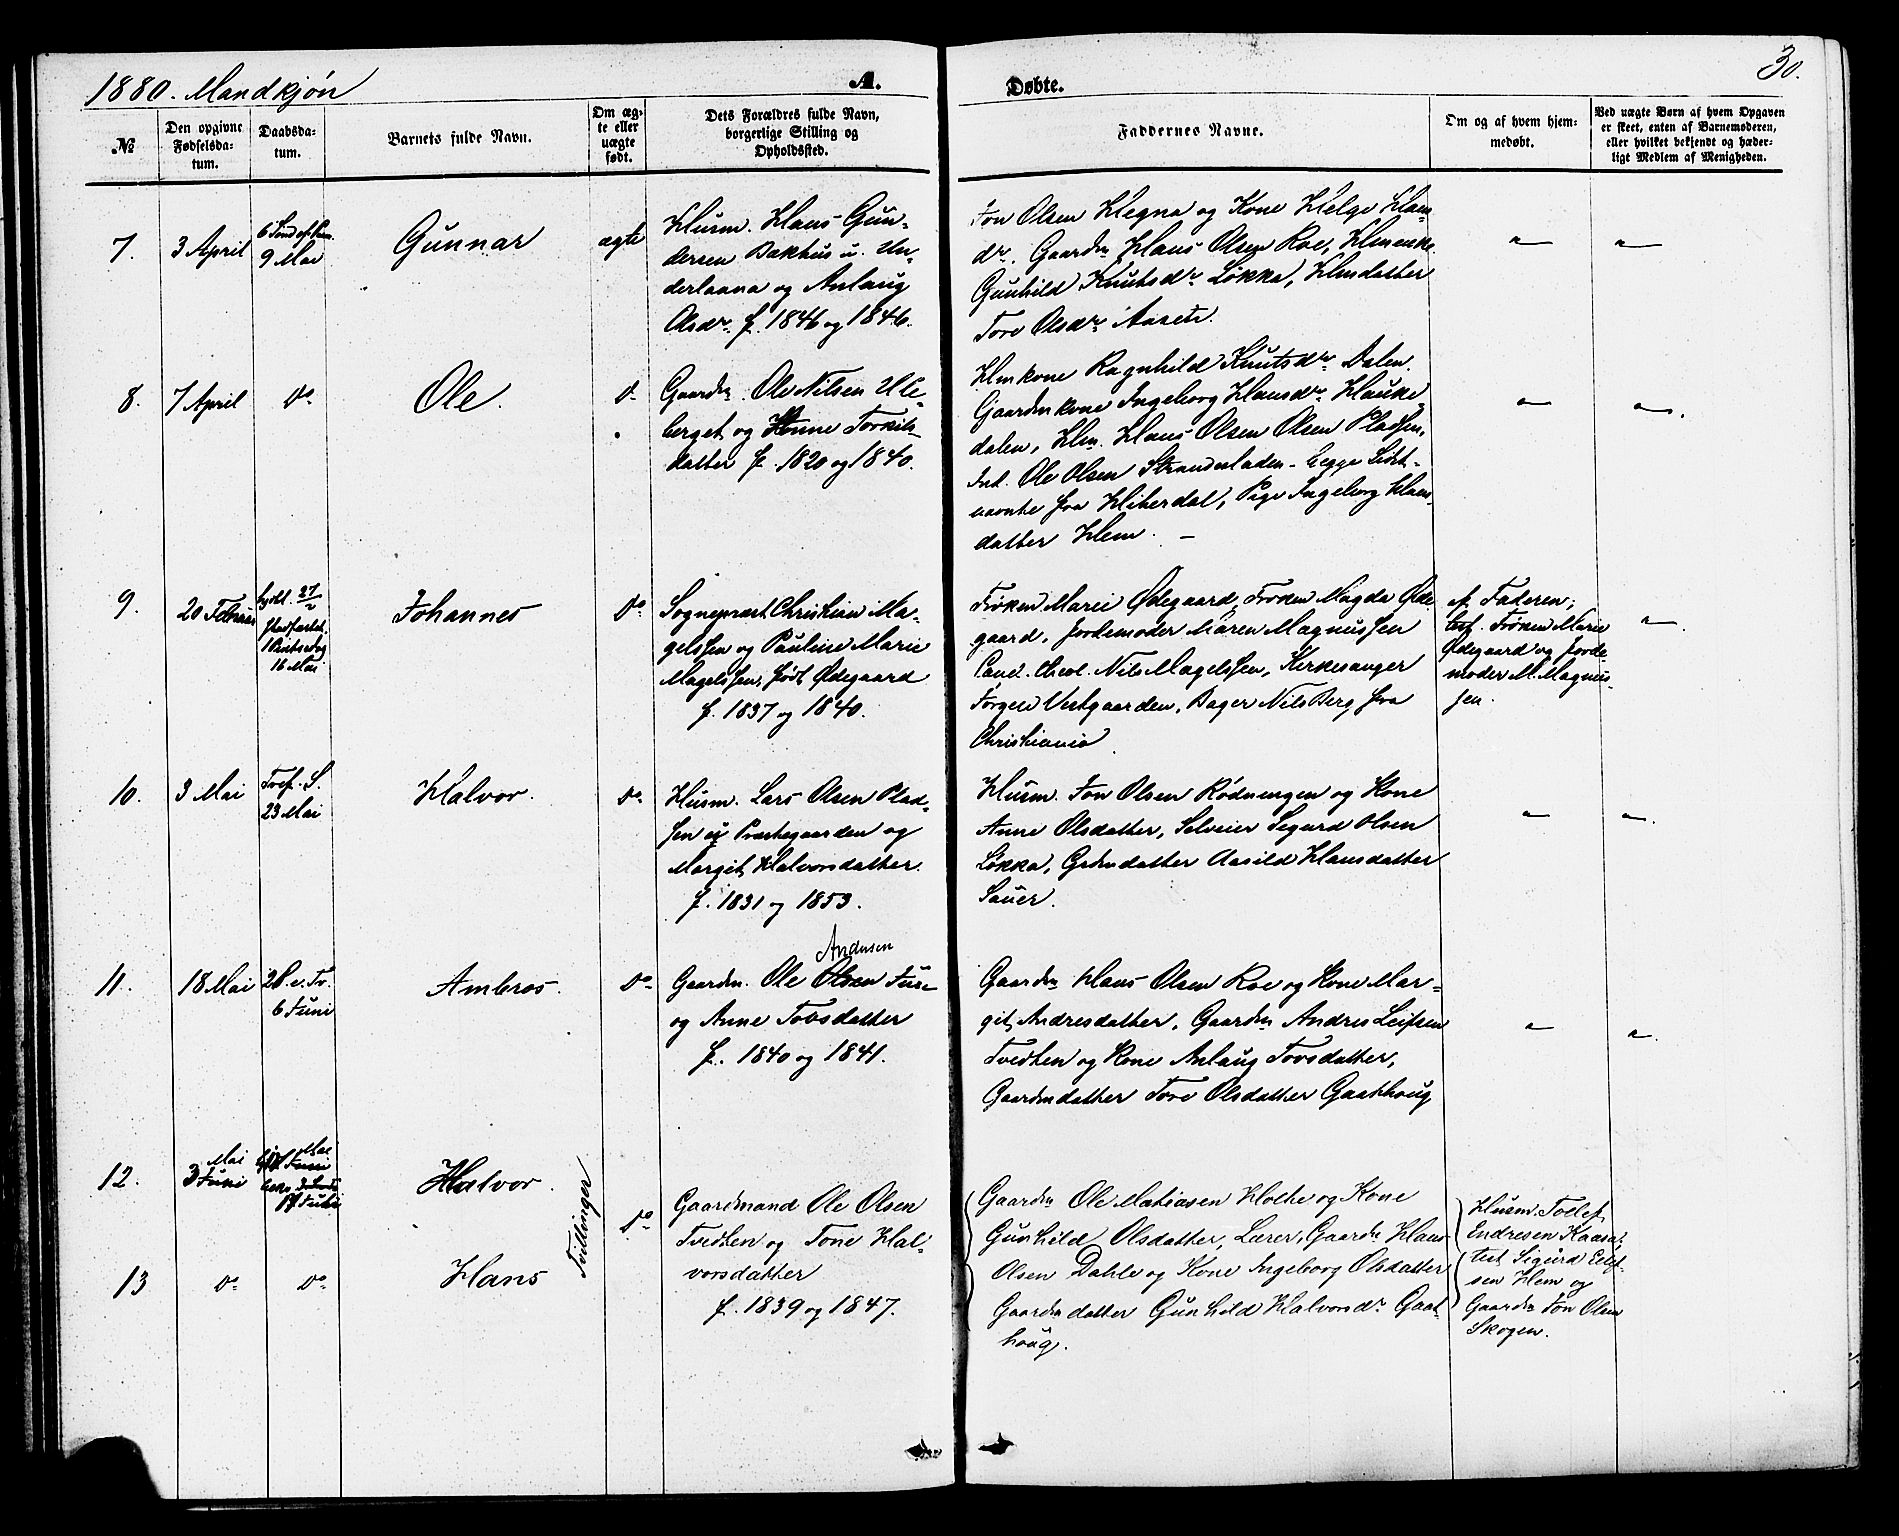 1880. Mandkjön
A.
Døbte.
30.
№
Den opgivne Fødselsdatum.
Daabsdatum.
Barnets fulde Navn.
Om ægte eller uægte født.
Dets Forældres fulde Navn, borgerlige Stilling og Opholdssted.
Faddernes Navne.
Om og af hvem hjemmedøbt.
Ved uægte Børn af hvem Opgaven er skeet, enten af Barnemoderen, eller hvilket bekjendt og hæderligt Medlem af Menigheden.
7.
3 April
9 Mai
Gunnar
ægte
Husm. Hans Gun-
dersen Bakhus u. Un-
derlaana og Anlaug
Olsdr. f. 1846 og 1846.
Jon Olsen Hegna og Kone Helge Han-
dr. Gaardm Hans Olsen Roe, Hmenke
Gunhild Knutsdr. Løkka, Hmdatter
Tore Olsdr.
8.
7 April
do
Ole.
do
Gaardm. Ole Nilsen
berget og Anne Torkils-
datter f. 1820 og 1840.
Hmkone Ragnhild Knutsdr. Dalen.
Gaardmkone Ingeborg Hansdr. Hauke-
dalen, Hm. Hans Olsen Olsen Pladsen,
Ole Olsen
fra Hiterdal, Pige Ingeborg Hans-
datter Hem. –
9.
20 Februar
hjdbt. 27/2
16 Mai
Johannes
do
Sognepræst Christian Ma-
gelssen og Pauline Marie
Magelssen, født Ødegaard
f. 1837 og 1840.
Frøken Marie Ødegaard, Frøken Magda Øde-
gaard, Jordemoder Maren Magnussen
Cand. theol. Nils Magelssen, Kirkesanger
Jørgen Vestgaarden, Bager Nils Berg fra
Christiania
af Faderen;
test. Frøken Marie
Ødegaard og Jorde-
moder M. Magnus-
sen.
10.
3 Mai
Tref. S.
23 Mai
Halvor.
do
Husm. Lars Olsen Plad-
sen Præstegaarden og
Margit Halvorsdatter.
f. 1831 og 1853.
Husm. Jon Olsen Rødningen og Kone
Anne Olsdatter, Selveier Sigurd Olsen
Løkka, Grdmdatter Aasild Hansdatter
Sauer.
11.
18 Mai
2 S. e. Tr.
6 Juni
Ambros.
do
Andersen
Gaardm. Ole Olsen
og Anne Tovsdatter
f. 1840 og 1841.
Gaardm Hans Olsen Roe og Kone Mar-
git Andresdatter, Gaardm Andres Leifsen
Tvedten og Kone Anlaug Tovsdatter,
Gaardmdatter Tore Olsdatter Gaarhoug
12.
Mai
3 Juni
Mai
Juni
Halvor.
Tvillinger
do
Gaardmand Ole Olsen
Tvedten og Tone Hal-
vorsdatter
f. 1839 og 1847.
Gaardm Ole Matiasen Holte og Kone
Gunhild Olsdatter, Lærer, Gaardm Hans
Olsen Dahle og Kone Ingeborg Olsdatter
Gaardm datter Gunhild Halvorsdr Gaar-
houg.
Husm. Tollef
Endresen Kaasa;
test. Sigurd
sen Hem og
Gaardm Jon Olsen
Skogen.
13
do
do
Hans